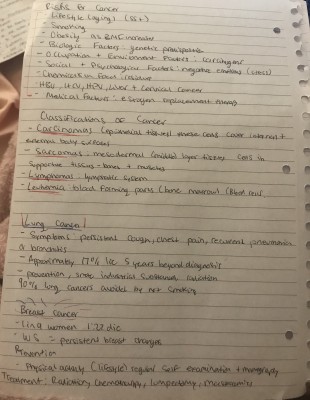 Risks for Cancer
- Lifestyle (aging) (55+)
- Smoking
- Obesity as BMI increases
- Biologic Factors: genetic
- Occupation + Environment Factors: carcinogens
- Social + Psychological Factors: negative emotions (stress)
- Chemicals in Food:
HBV, HCV, HPV, Liver + Cervical cancer
- Medical Factors: estrogen replacement therapy
Classifications of Cancer
- Carcinomas (epithelial tissues) cells cover internal +
external body surfaces
- Sarcomas: mesodermal (middle) layer tissues cells in
supportive tissues - bones + muscles
- Lymphomas: lymphatic system
- Leukemia: blood forming parts (bone marrow) (Blood cells
Lung Cancer
- Symptoms persistent cough, chest pain, recurrent pneumonia
or bronchitis
- Approximately 17% live 5 years beyond diagnosis
- prevention, smoke industrial substance radiation
90% lung cancers avoided by not smoking
Breast Cancer
- 1 in 8 women 1:22 die
- W/S = persistent breast changes
Prevention
- Physical activity (lifestyle) regular self examination + mammography
Treatment: Radiation, chemotherapy, lumpectomy, mastectomy